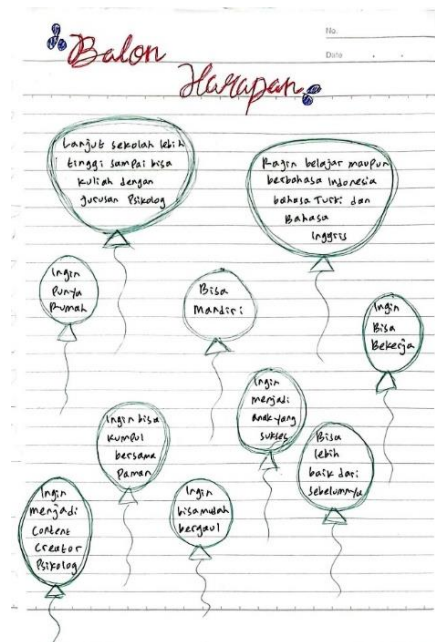 No.
Date
Balon
Harapan
Lanjut sekolah lebih
tinggi sampai bisa
kuliah dengan
jurusan Psikolog
Rajin belajar maupun
berbahasa Indonesia
bahasa Turki dan
Bahasa
Inggris
Ingin
Punya
Rumah
Bisa
Mandiri
Ingin
Bisa
Bekerja
Ingin bisa
kumpul
bersama
Paman
Ingin
menjadi
anak yang
sukses
Bisa
lebih
baik dari
sebelumnya
Ingin
menjadi
Content
Creator
Psikolog
Ingin
bisa mudah
bergaul